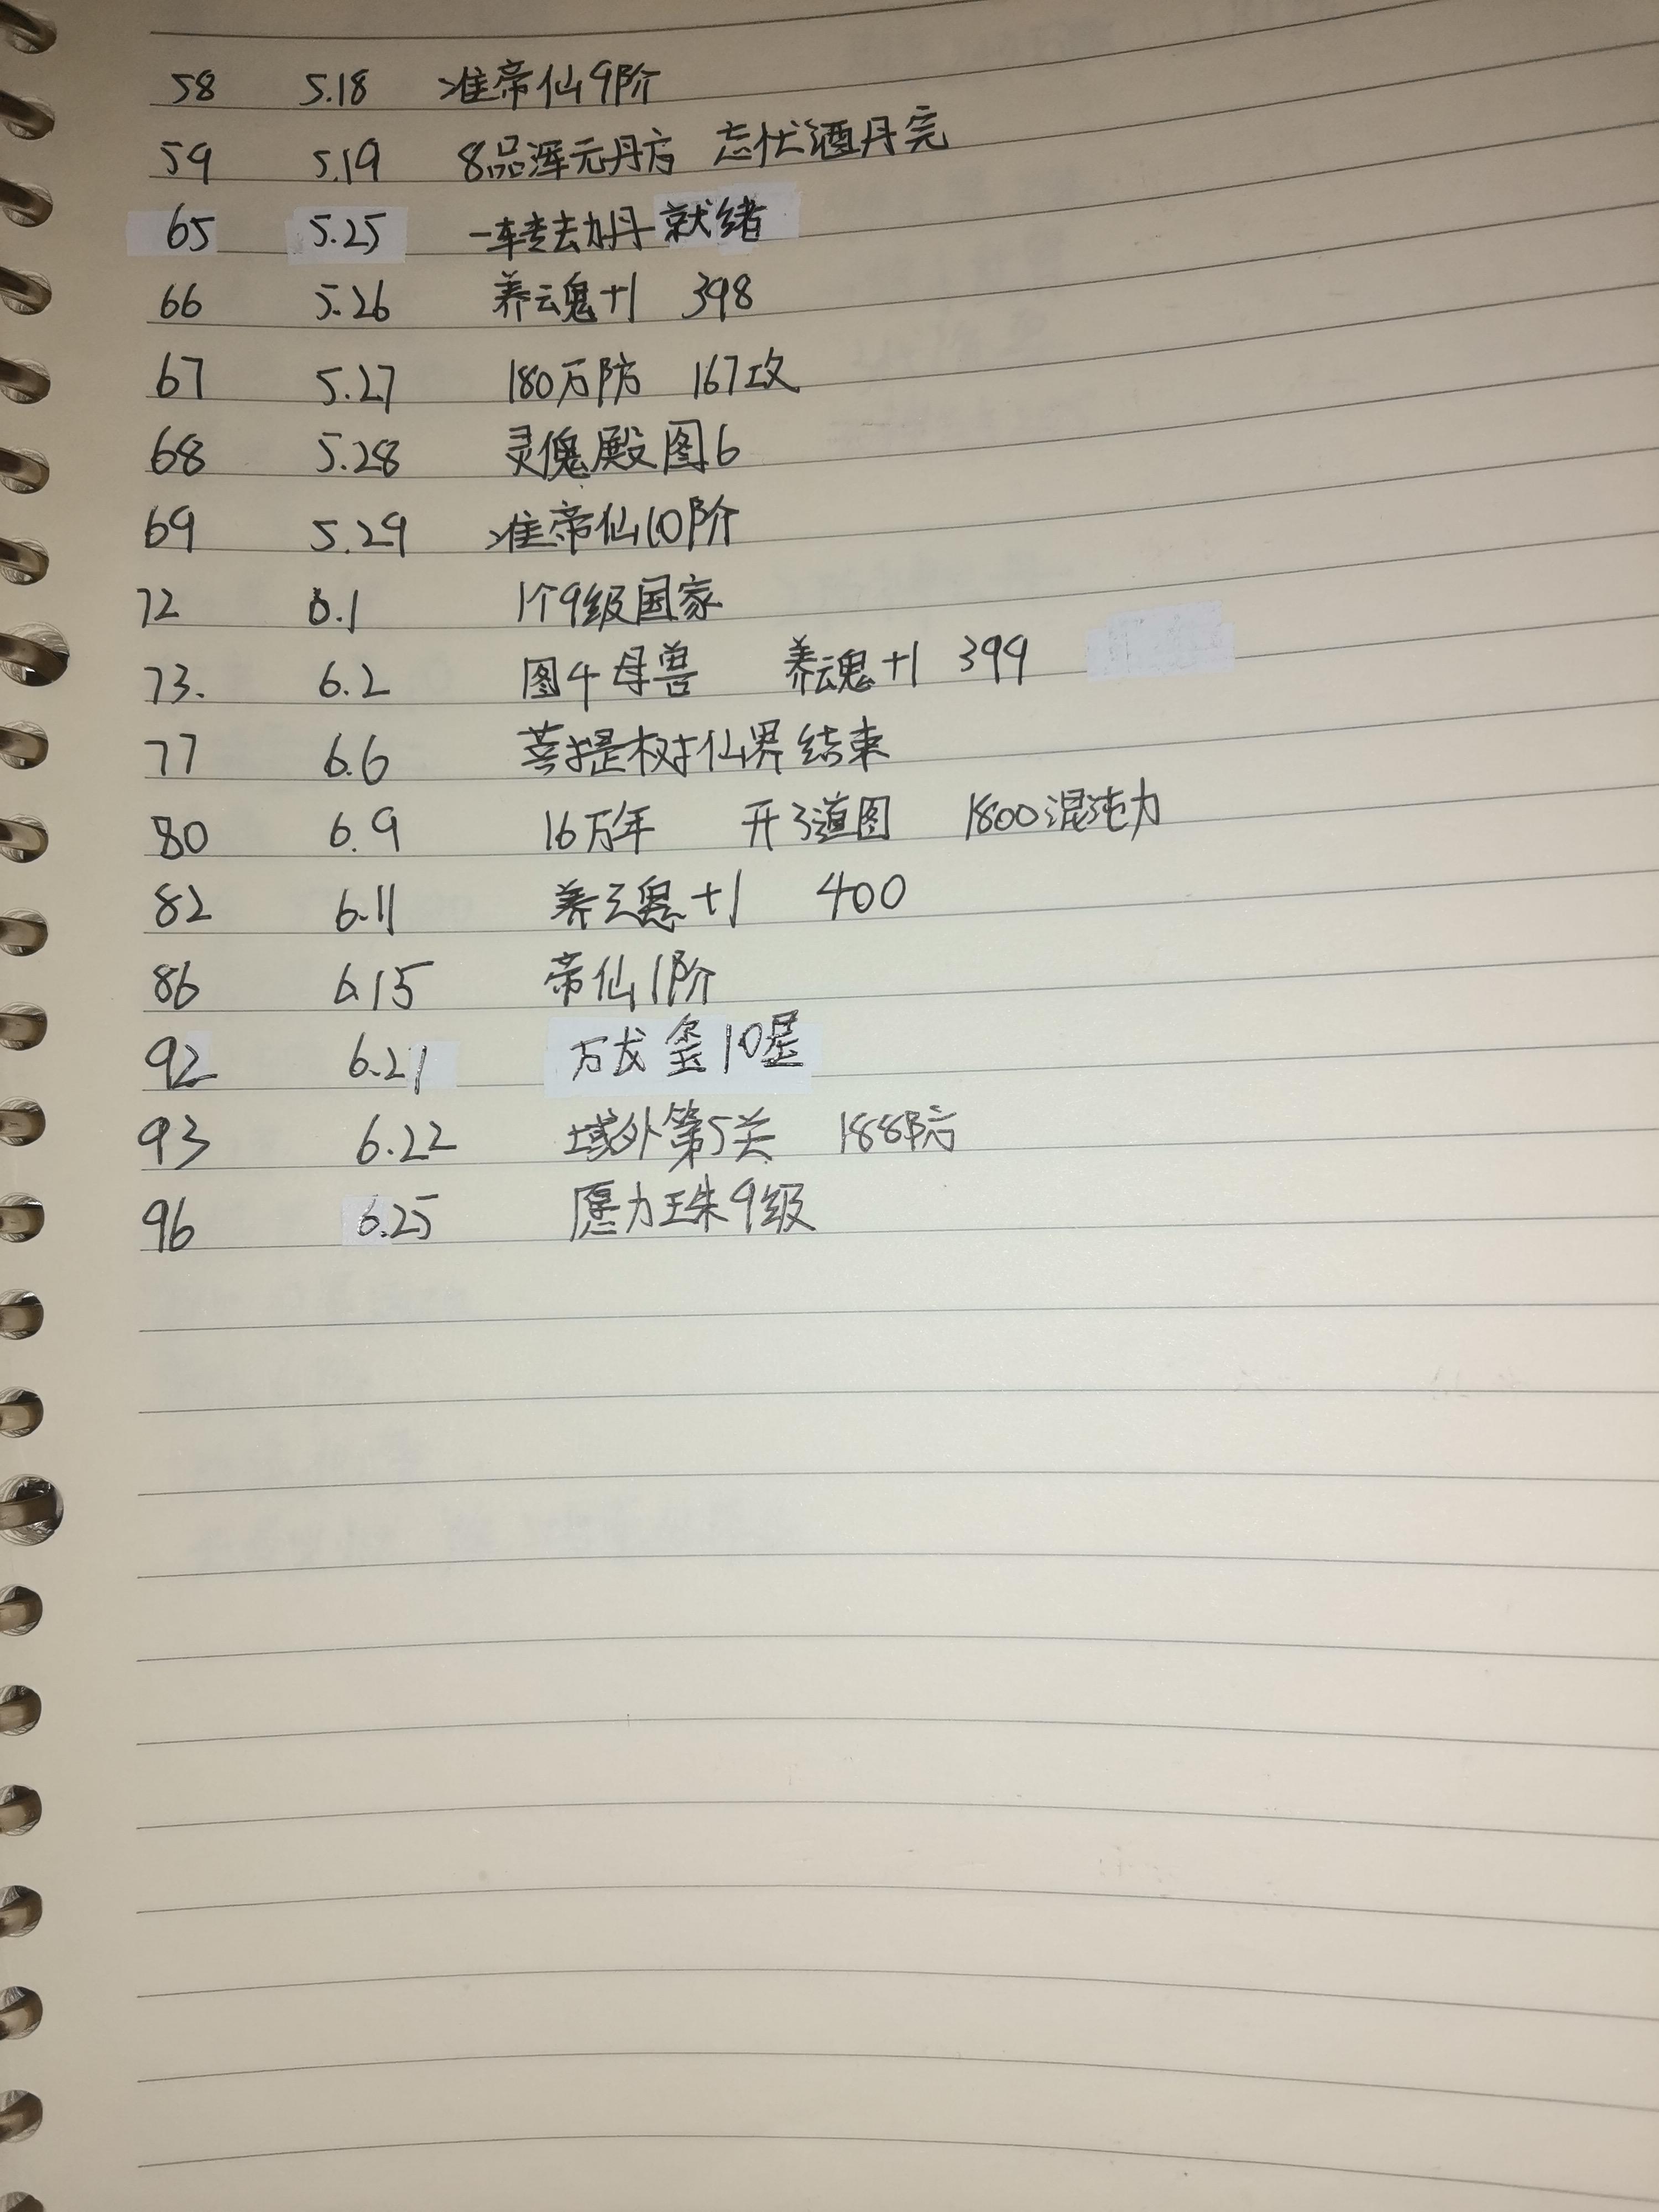 58 5.18 准帝仙9阶
59 5.19 8品浑元丹方 忘忧酒丹完
65 5.25 一转去劫丹就绪
66 5.26 养云魂+1 398
67 5.27 180万防 167攻
68 5.28 灵傀殿图6
69 5.29 准帝仙10阶
72 6.1 1个9级国家
73. 6.2 图4母兽 养云魂+1 399
77 6.6 菩提树仙界结束
80 6.9 16万年 开3道图 1800混沌力
82 6.11 养云魂+1 400
86 6.15 帝仙1阶
92 6.21 万戈玺10星
93 6.22 域外第5关 188防
96 6.25 愿力珠9级